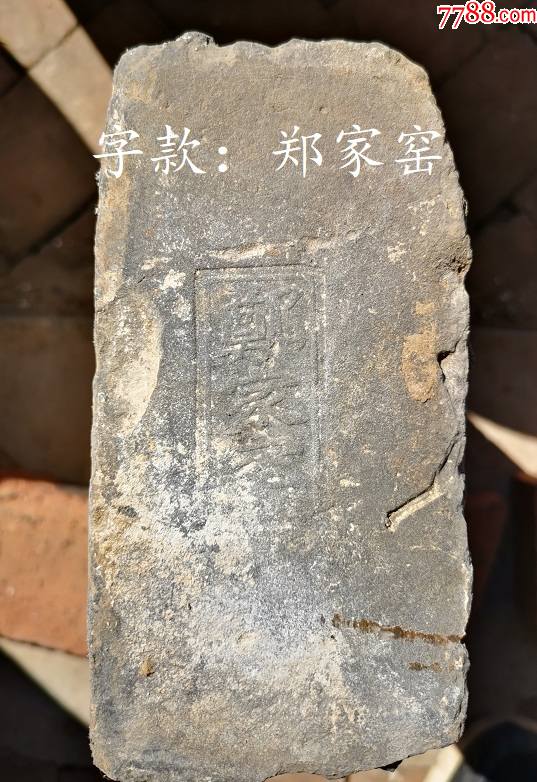 7788.com
字款：郑家窑
鄭家窑